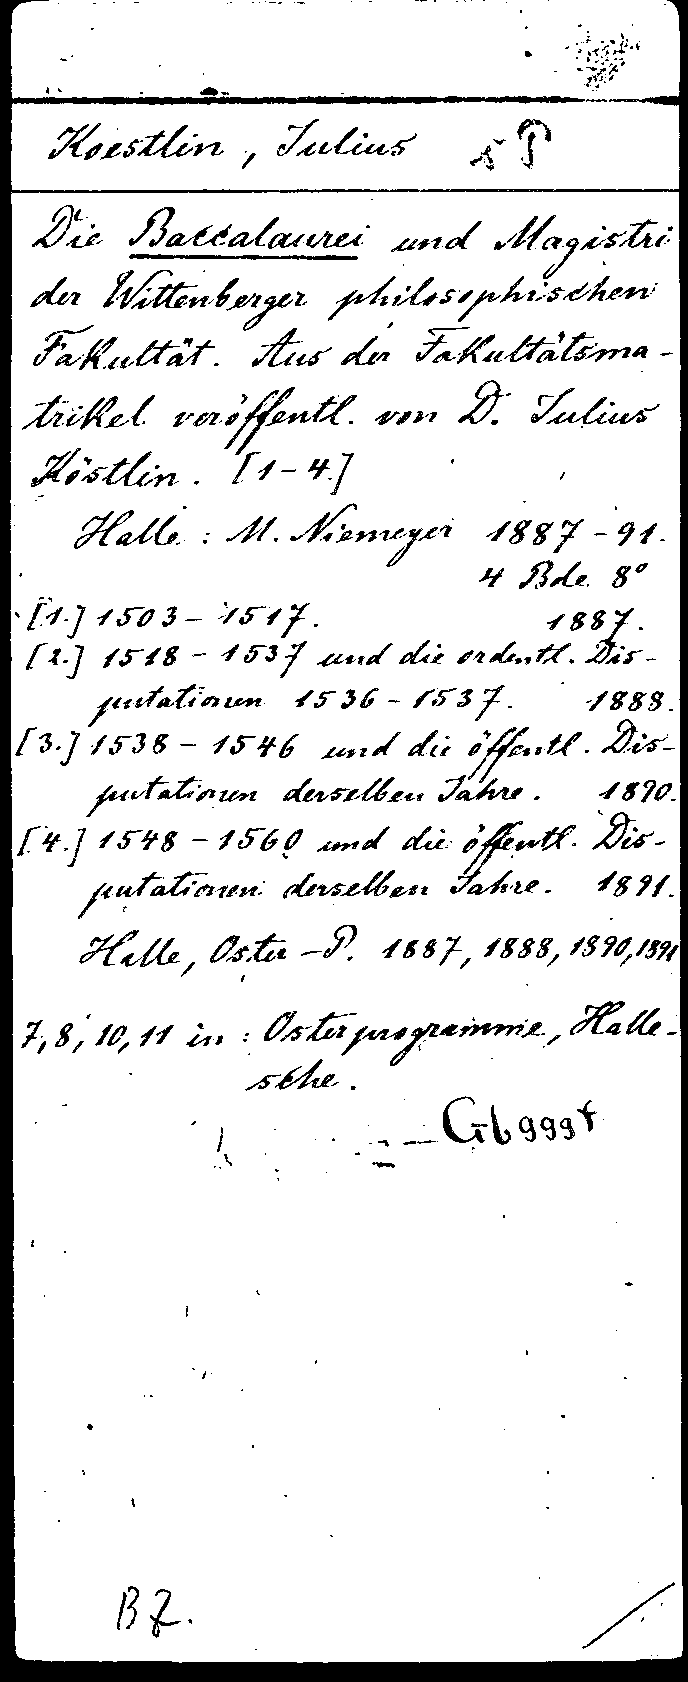 Koestlin, Julius 5 P
Die Baccalaurei und Magistri
der Wittenberger philosophischen
Fakultät. Aus der Fakultätsma-
trikel veröffentl. von D. Julius
Köstlin. [1-4.]
Halle : M. Niemeyer 1887-91.
4 Bde 8°
[1.] 1503-1517. 1887.
[2.] 1518-1537 und die ordentl. Dis-
putationen 1536-1537. 1888.
[3.] 1538-1546 und die öffentl. Dis-
putationen derselben Jahre. 1890.
[4.] 1548-1560 und die öffentl. Dis-
putationen derselben Jahre. 1891.
Halle, Oster-P. 1887, 1888, 1890, 1891
7, 8, 10, 11 in : Osterprogramme, Halle-
sche.
Gb 999 f
BZ.